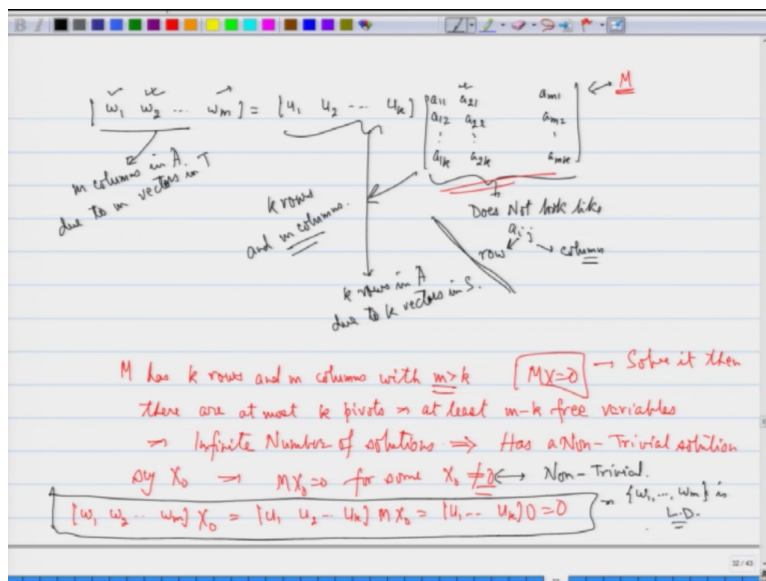 [w₁ w₂ ... wₘ] = [u₁ u₂ --- uₖ] [a₁₁ a₂₁ aₘ₁ ← M
a₁₂ a₂₂ aₘ₂
⋮ ⋮ ⋮
a₁ₖ a₂ₖ aₘₖ]
m columns in A.
due to m vectors in T
k rows
and m columns.
Does Not look like
aᵢⱼ
row column
k rows in A
due to k vectors in S.
M has k rows and m columns with m>k [MX=0] → Solve it then
there are at most k pivots ⇝ at least m-k free variables
⇝ Infinite Number of solutions ⇒ Has a Non-Trivial solution
say X₀ ⇝ MX₀=0 for some X₀ ≠0 ↔ Non-Trivial.
[w₁ w₂ .. wₘ] X₀ = [u₁ u₂ .. uₖ] MX₀ = [u₁... uₖ]0=0 ⇝ {w₁, ..., wₘ} is
L.D.
32/43